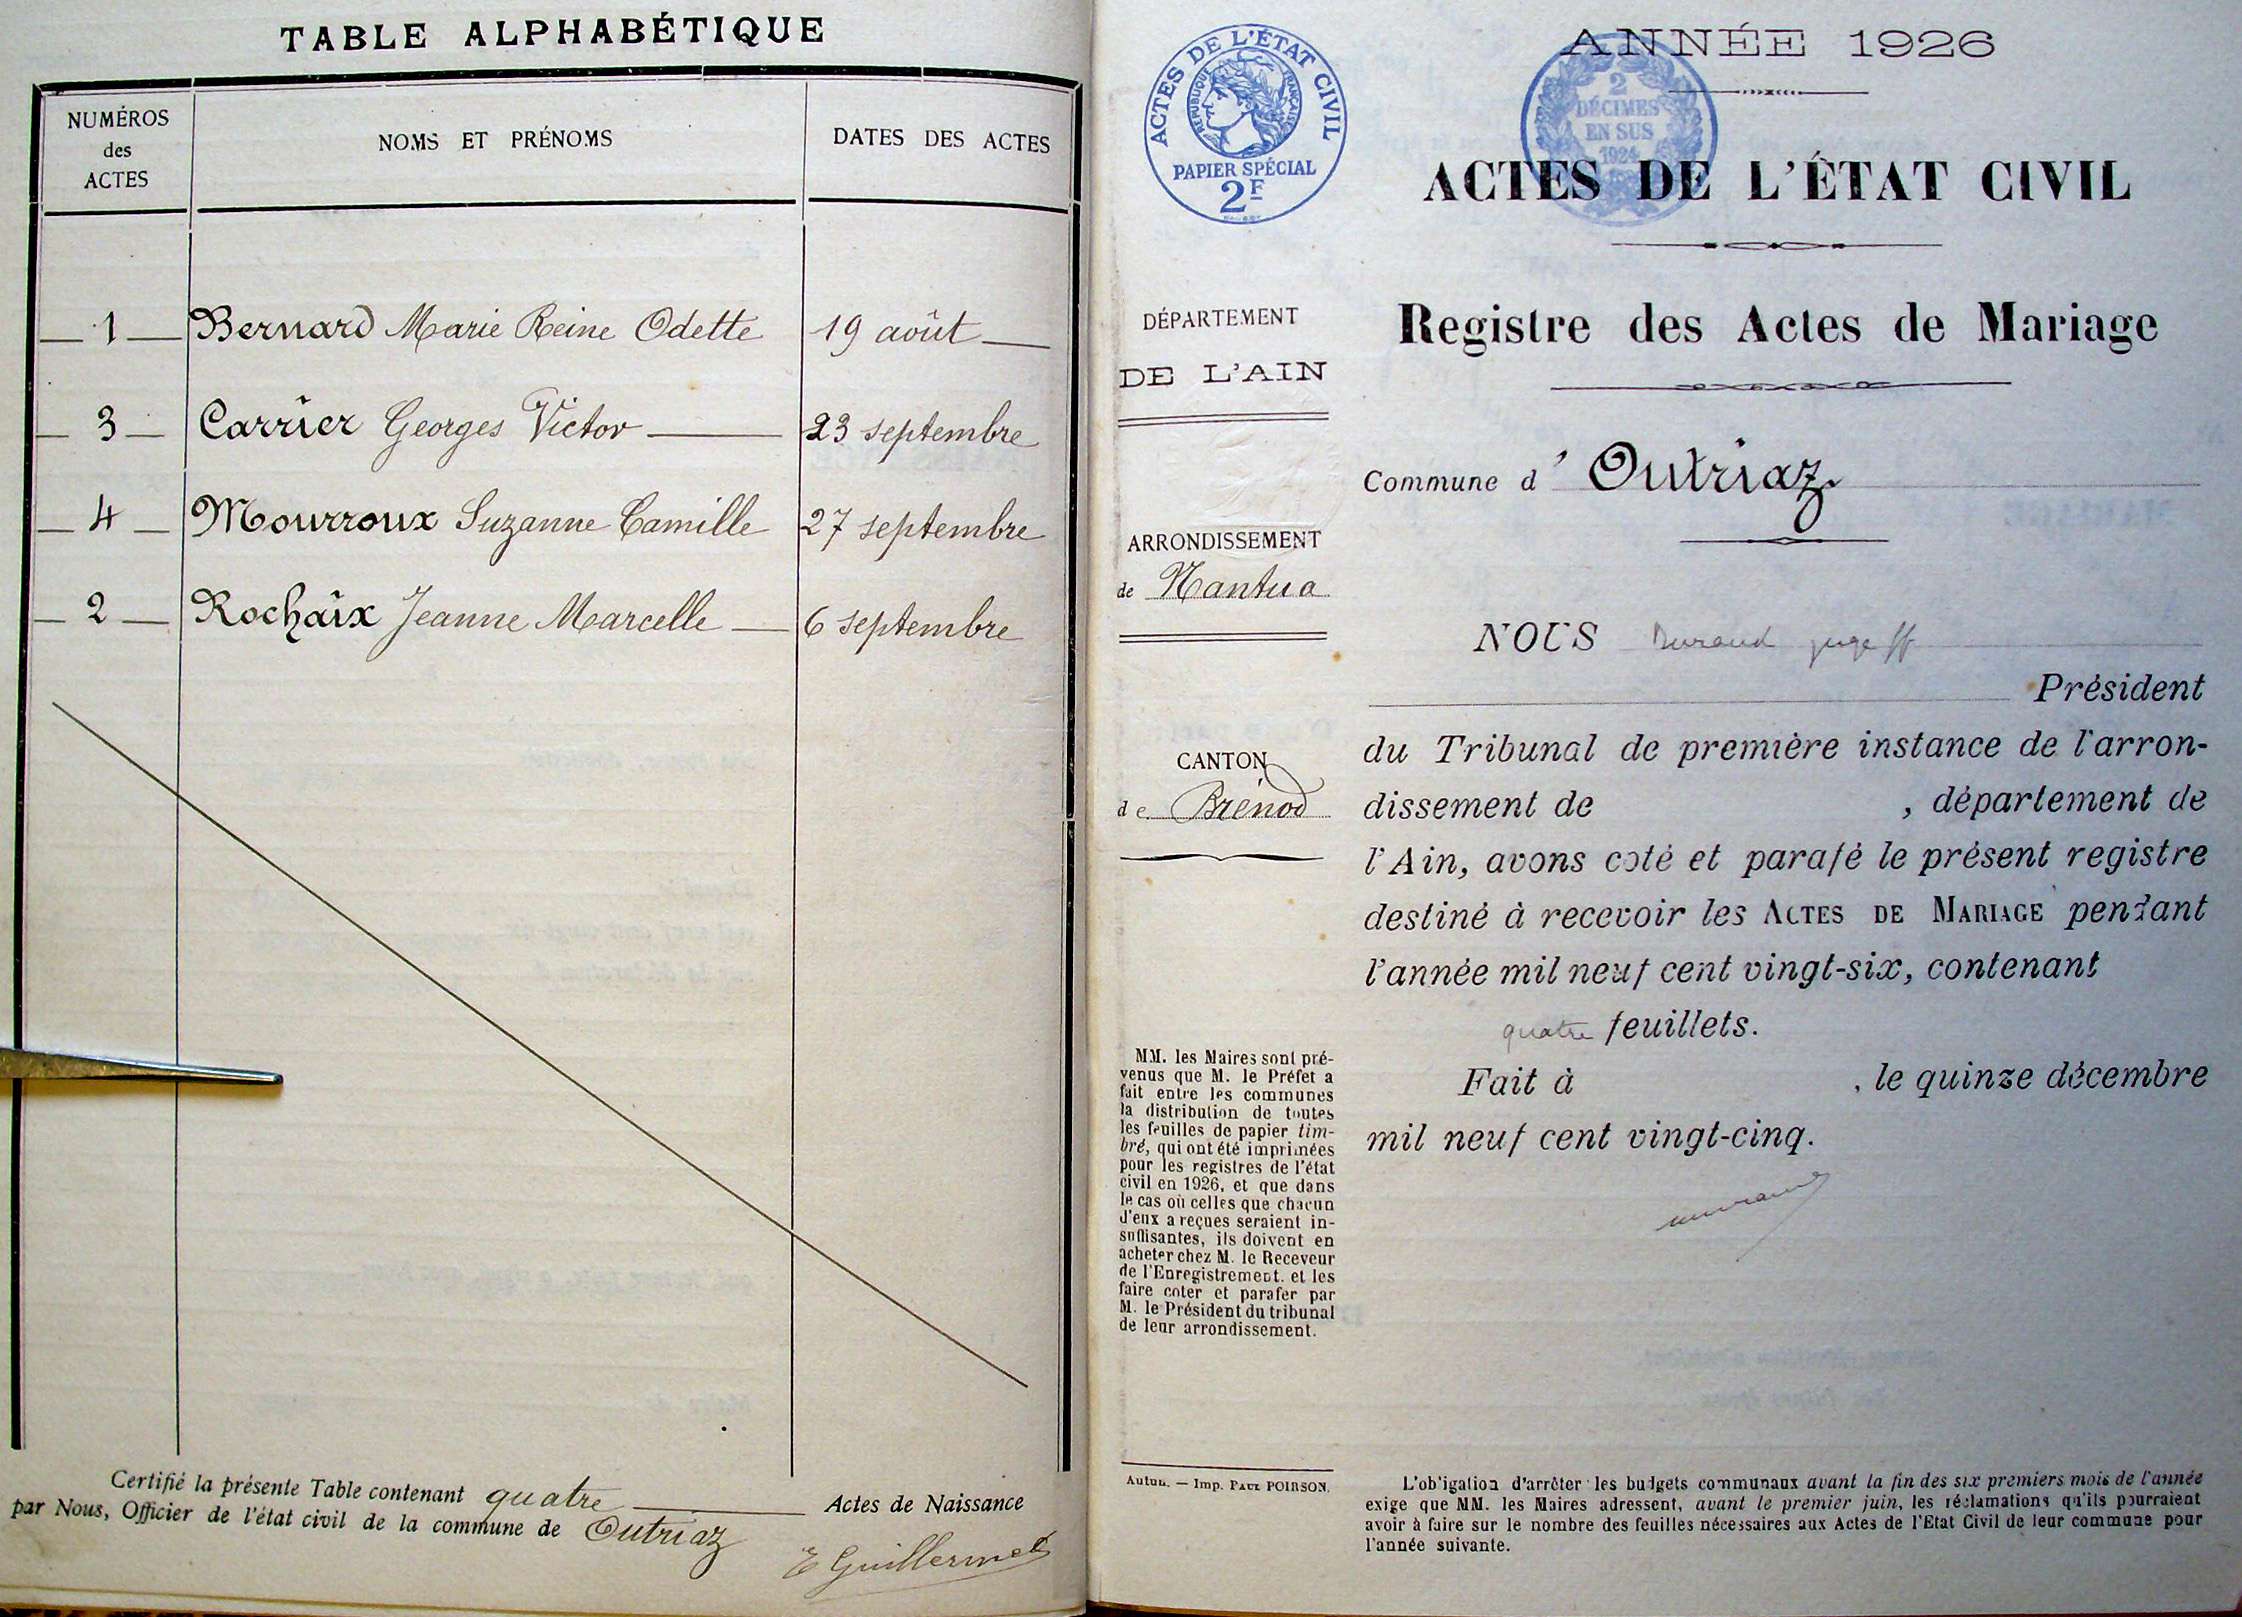 TABLE ALPHABÉTIQUE
NUMÉROS
des
ACTES
NOMS ET PRÉNOMS
DATES DES ACTES
1 Bernard Marie Reine Odette 19 août
3 Carrier Georges Victor 23 septembre
4 Mourroux Suzanne Camille 27 septembre
2 Rochaix Jeanne Marcelle 6 septembre
Certifié la présente Table contenant quatre Actes de Naissance
par Nous, Officier de l'état civil de la commune de Outriaz
E Guillermet
ACTES DE L'ÉTAT CIVIL
RÉPUBLIQUE FRANÇAISE
PAPIER SPÉCIAL
2F
2
DÉCIMES
EN SUS
1924
ANNÉE 1926
ACTES DE L'ÉTAT CIVIL
Registre des Actes de Mariage
DÉPARTEMENT
DE L'AIN
Commune d' Outriaz
ARRONDISSEMENT
de Nantua
CANTON
de Brénod
MM. les Maires sont pré-
venus que M. le Préfet a
fait entre les communes
la distribution de toutes
les feuilles de papier tim-
bré, qui ont été imprimées
pour les registres de l'état
civil en 1926, et que dans
le cas où celles que chacun
d'eux a reçues seraient in-
suffisantes, ils doivent en
acheter chez M. le Receveur
de l'Enregistrement. et les
faire coter et parafer par
M. le Président du tribunal
de leur arrondissement.
Autun. — Imp. PAUL POIRSON.
NOUS Durand juge ff
Président
du Tribunal de première instance de l'arron-
dissement de , département de
l'Ain, avons coté et parafé le présent registre
destiné à recevoir les ACTES DE MARIAGE pendant
l'année mil neuf cent vingt-six, contenant
quatre feuillets.
Fait à , le quinze décembre
mil neuf cent vingt-cinq.
L'obligation d'arrêter les budgets communaux avant la fin des six premiers mois de l'année
exige que MM. les Maires adressent, avant le premier juin, les réclamations qu'ils pourraient
avoir à faire sur le nombre des feuilles nécessaires aux Actes de l'Etat Civil de leur commune pour
l'année suivante.